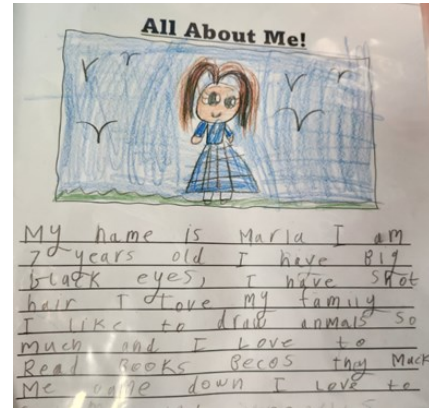 All About Me!
My name is Marla I am
7 years old I have Big
black eyes, I have Shot
hair I Love My family
I like to draw anmals So
much and I Love to
Read Books Becos they Mack
Me down I Love to